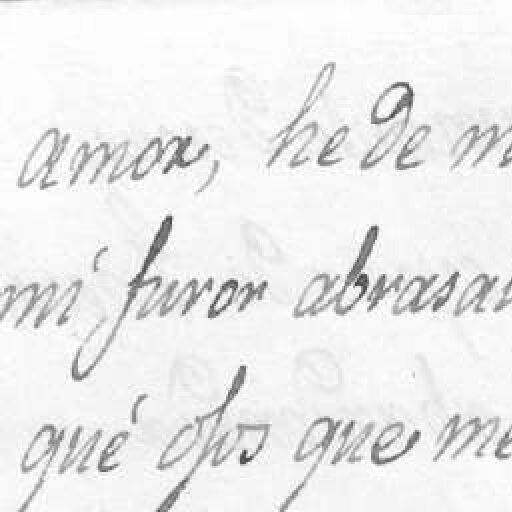 amor, he de m
mi furor abrasa
qué ojos que me